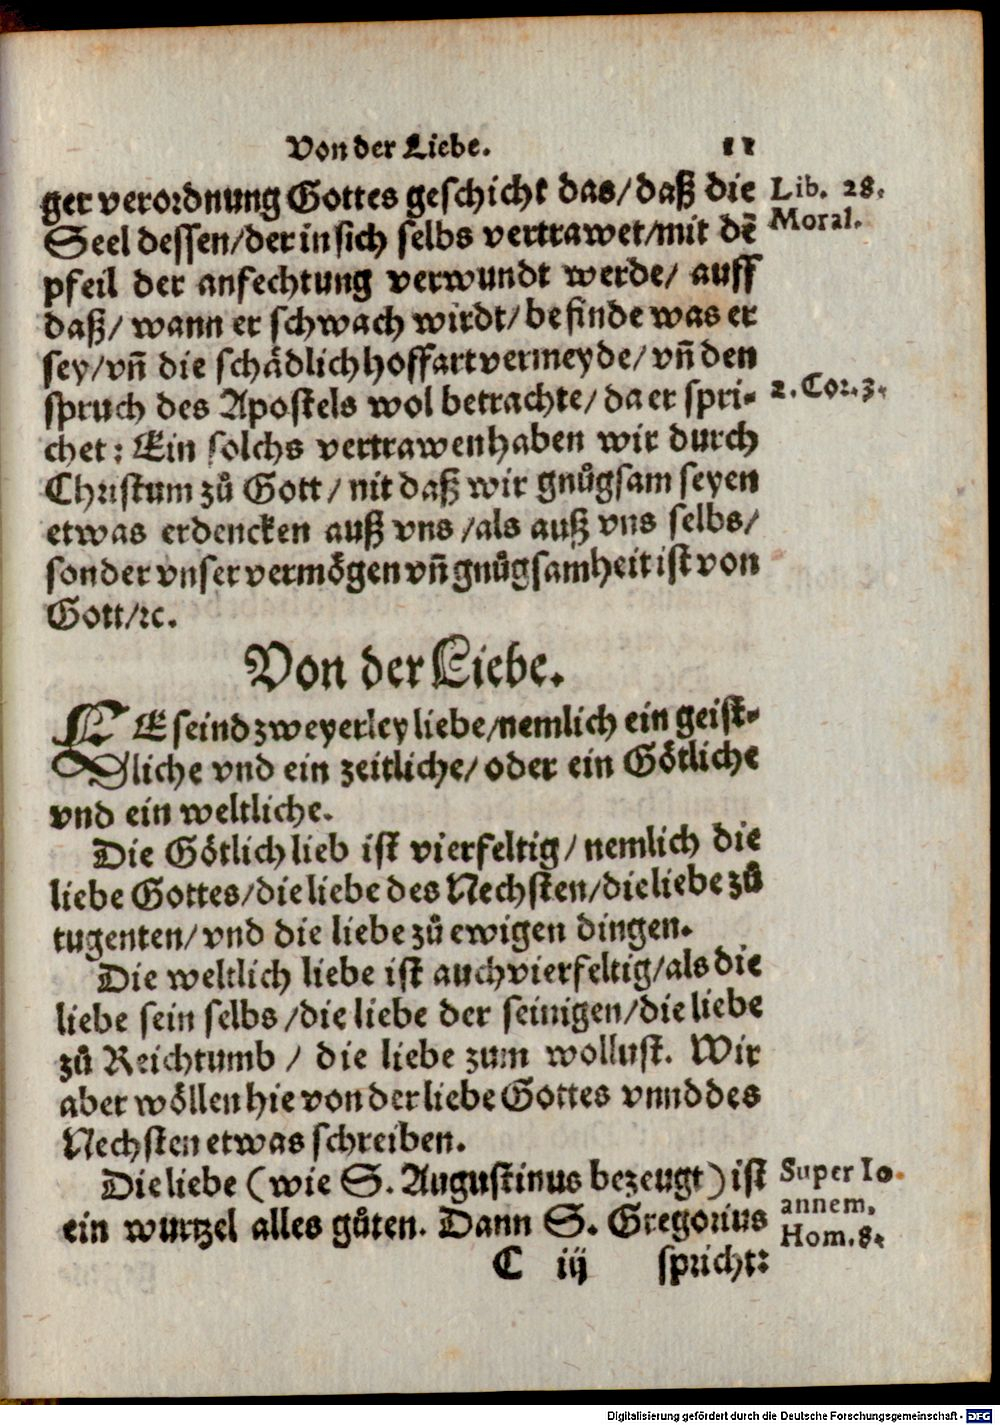 Von der Liebe. 11
ger verordnung Gottes geschicht das/daß die
Lib. 28.
Seel dessen/der in sich selbs vertrawet/mit dē
Moral.
pfeil der anfechtung verwundt werde/ auff
daß/ wann er schwach wirdt/befinde was er
sey/vñ die schädlich hoffart vermeyde/vñ den
spruch des Apostels wol betrachte/da er spri-
2. Cor. 3.
chet: Ein solchs vertrawen haben wir durch
Christum zů Gott/ nit daß wir gnůgsam seyen
etwas erdencken auß vns/als auß vns selbs/
sonder vnser vermögen vñ gnůgsamheit ist von
Gott/ꝛc.
Von der Liebe.
ES seind zweyerley liebe/nemlich ein geist-
liche vnd ein zeitliche/oder ein Götliche
vnd ein weltliche.
Die Götlich lieb ist vierfeltig/nemlich die
liebe Gottes/die liebe des Nechsten/die liebe zů
tugenten/vnd die liebe zů ewigen dingen.
Die weltlich liebe ist auch vierfeltig/als die
liebe sein selbs/die liebe der seinigen/die liebe
zů Reichtumb/ die liebe zum wollust. Wir
aber wöllen hie von der liebe Gottes vnnd des
Nechsten etwas schreiben.
Die liebe (wie S. Augustinus bezeugt) ist
Super Io-
ein wurtzel alles gůten. Dann S. Gregorius
annem.
Hom. 8.
C iij spricht:
Digitalisierung gefördert durch die Deutsche Forschungsgemeinschaft - DFG